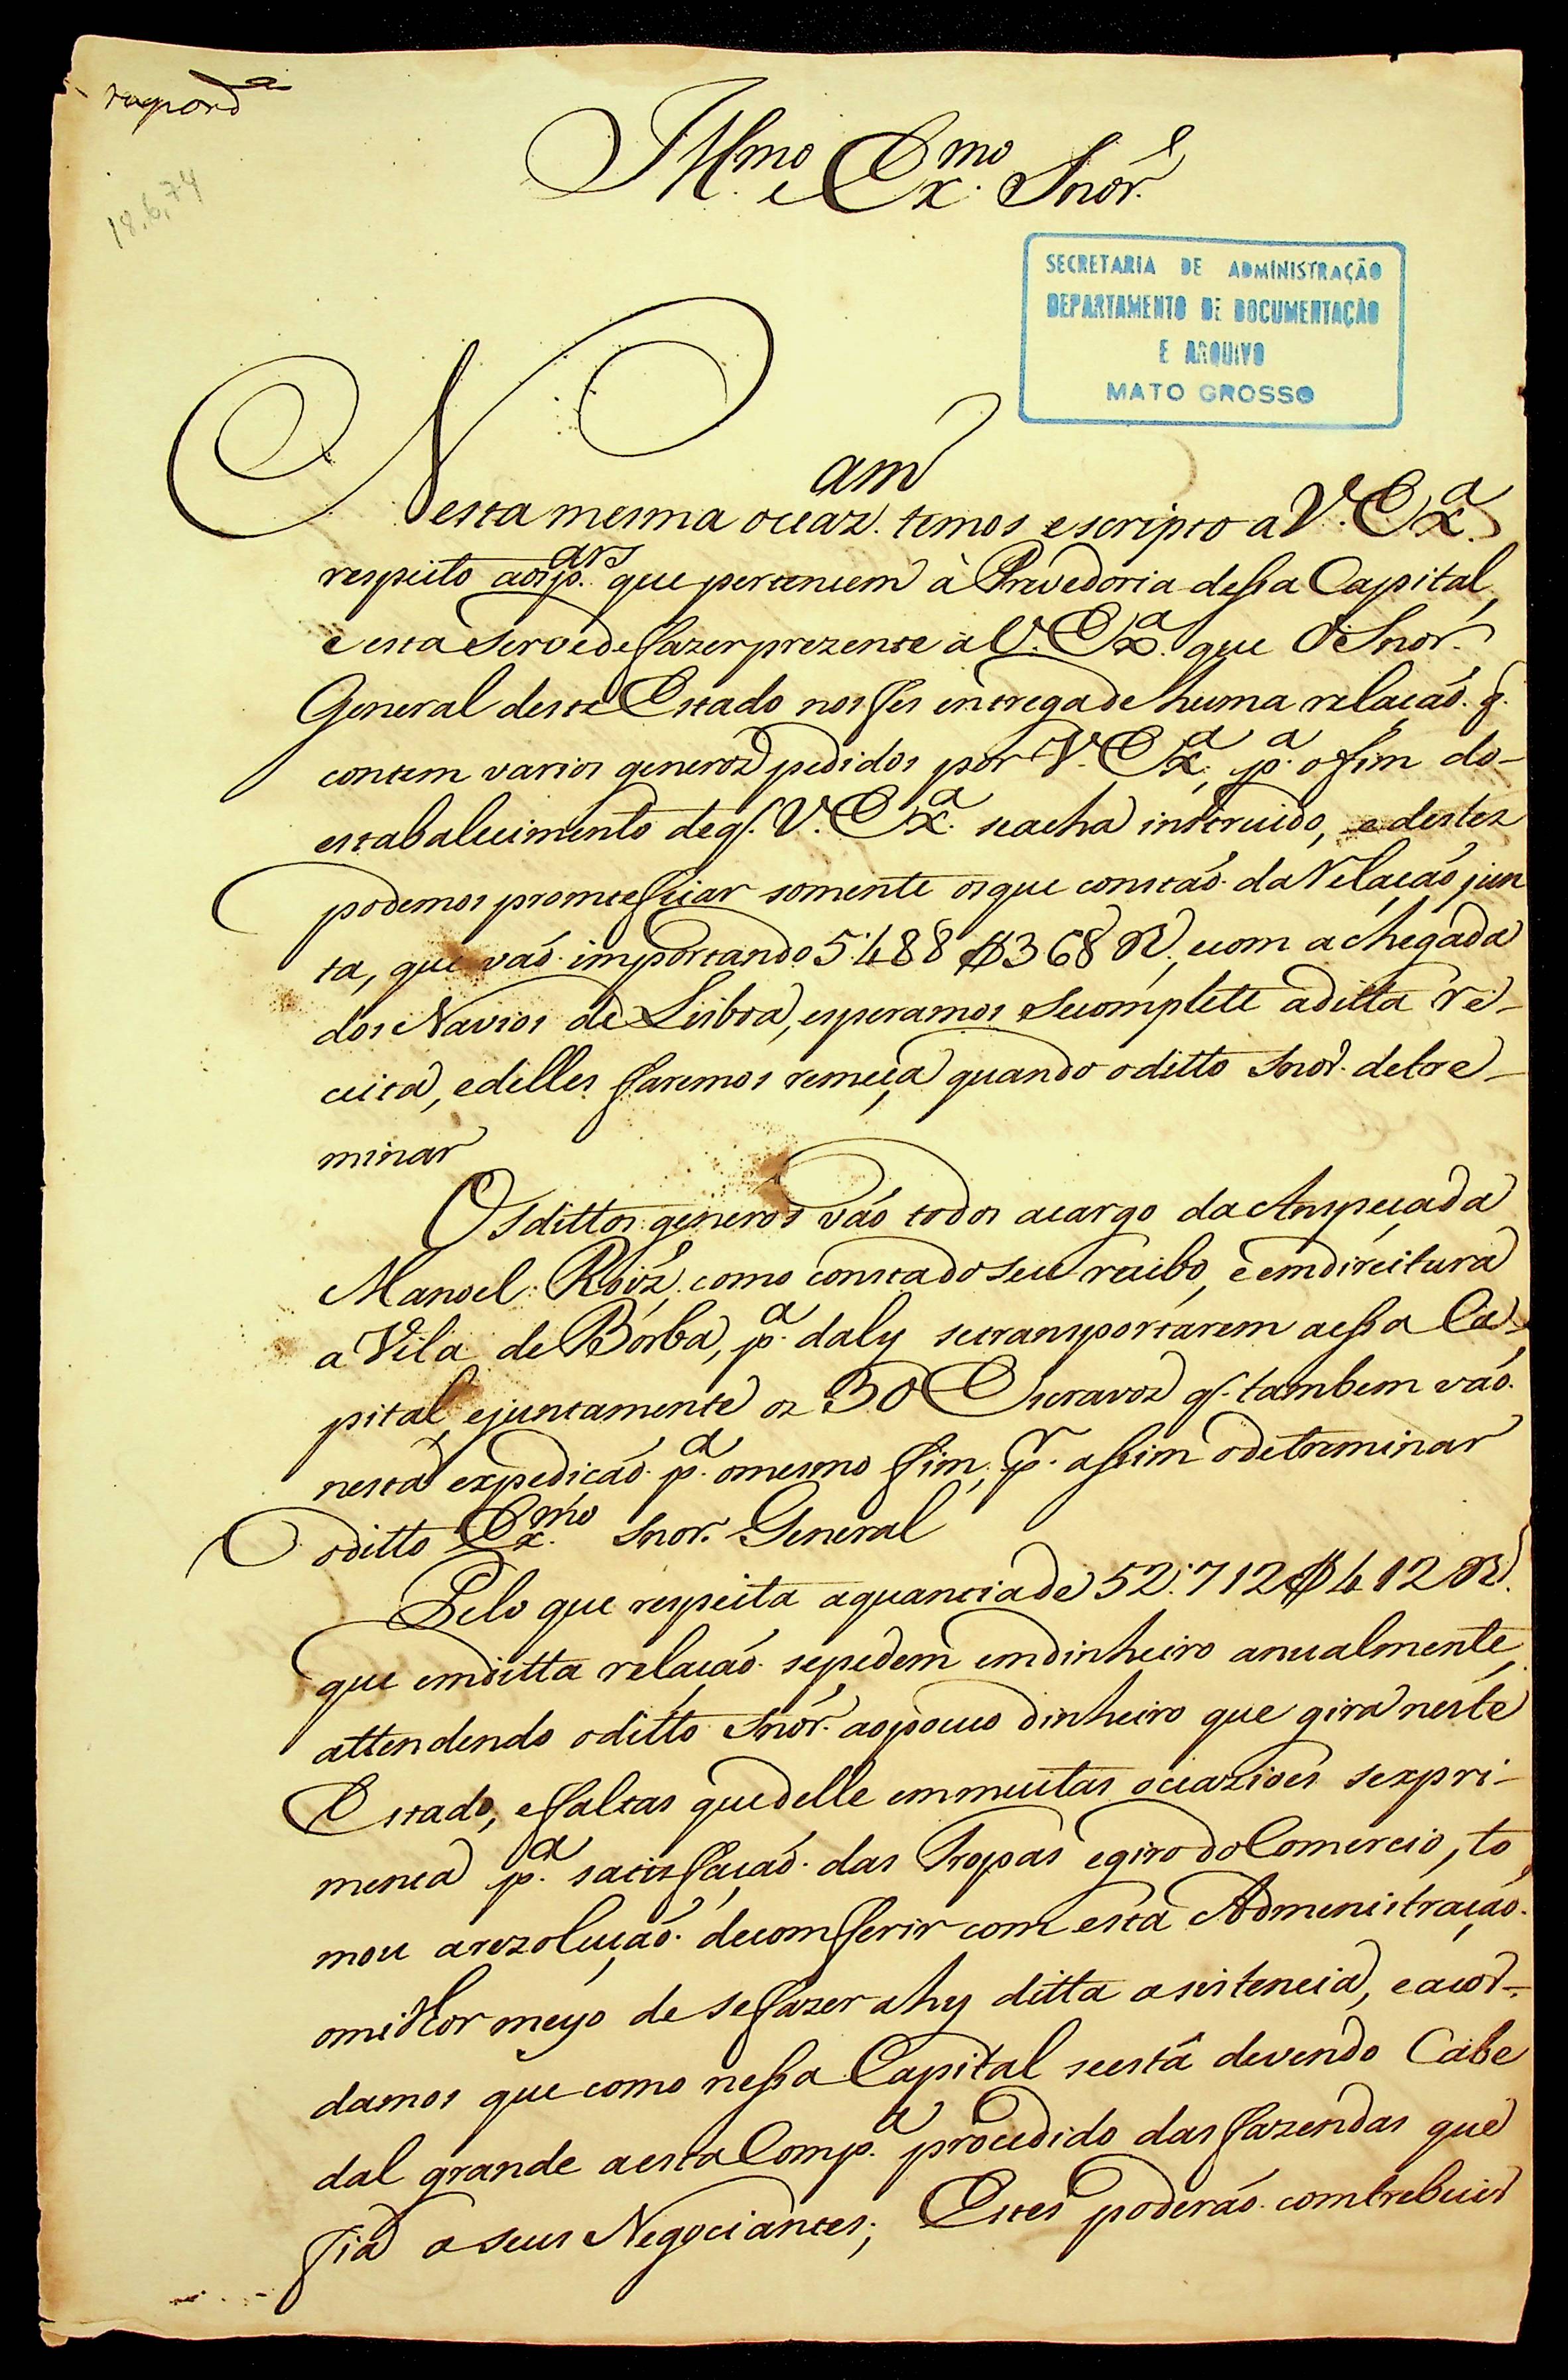 respond.ª
18.6,74
Ill.mo e Ex.mo Snór.
SECRETARIA DE ADMINISTRAÇÃO
DEPARTAMENTO DE DOCUMENTAÇÃO
E ARQUIVO
MATO GROSSO
Nesta mesma occaz.am temos escripto a V. Ex.a
respeito aos p.ars que pertencem à Provedoria dessa Capital,
e esta serve de fazer prezente a V. Ex.a que O Snor.
General deste Estado nos fes entrega de huma relaçaó. q.
contem varios generos pedidos por V. Ex.a, p.a o fim do-
estabalecimento de q. V. Ex.a se acha instruido, e destes
podemos promteficar somente os que constaó. da Relaçaó jun
ta, que vaó. importando 5:488$368 R., e com a chegada
dos Navios de Lisboa, esperamos se complete a ditta re-
ceita, e delles faremos remeça quando o ditto Snór. detre-
minar
Os dittos generos vaó todos a cargo da Anspeçada
Manoel Roiz, como consta do seu recibo, e em direitura
a Vila de Borba, p.a daly se transportarem a essa Ca-
pital, e juntamente os 30 Escravos q. tambem vaó.
nesta expediçaó. p.a o mesmo fim, p.r assim o detreminar
o ditto Ex.mo Snor. General
Pelo que respeita a quantia de 52:712$412 R.
que em ditta relaçaó. se pedem em dinheiro anualmente,
attendendo o ditto Snór. ao pouco dinheiro que gira neste
Estado, e faltas que delle em muitas occazioes se expri-
menta p.a satisfaçaó. das Tropas e giro do Comercio, to
mou a rezoluçaó. de comferir com esta Admenistraçaó.
o milhor meyo de se fazer ahy ditta asistencia, e acor-
damos que como nessa Capital se está devendo Cabe
dal grande a esta Comp.a procedido das fazendas que
fia a seus Negociantes; Estes poderaó. comtrebuir